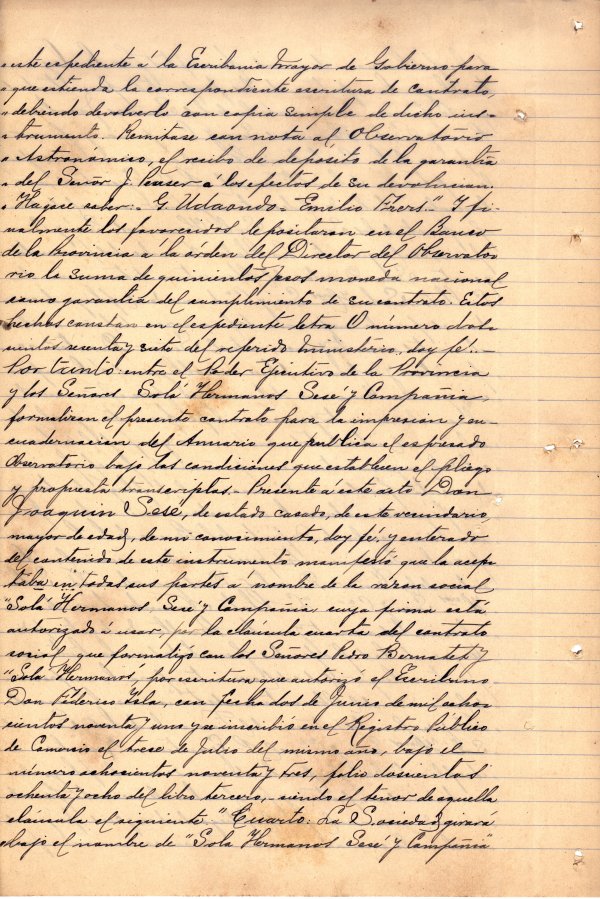 "este espediente á la Escribania Mayor de Gobierno para
"que estienda la correspondiente escritura de contrato,
"debiendo devolverlo con copia simple de dicho ins-
"trumento. Remitase con nota al Observatorio
"Astronómico, el recibo de deposito de la garantia
"del Señor J. Peuser á los efectos de su devolucion.
"Hágase saber:- G. Udaondo- Emilio Frers"- Y fi-
nalmente los favorecidos depositaran en el Banco
de la Provincia á la órden del Director del Observato
rio la suma de quinientos pesos moneda nacional
como garantia del cumplimento de su contrato. Estos
hechos constan en el espediente letra O número dos-
cientos sesenta y siete del referido Ministerio, doy fé.-
Por tanto: entre el Poder Ejecutivo de la Provincia
y los Señores Solá Hermanos Sesé y Compañia,
formalizan el presente contrato para la impresion y en-
cuadernacion del Anuario que publica el espresado
Observatorio bajo las condiciones que establecen el pliego
y propuesta transcriptas.- Presente á este acto Don
Joaquin Sesé, de estado casado, de este vecindario,
mayor de edad, de mi conocimiento, doy fé, y enterado
del contenido de este instrumento manifestó que lo acep-
taba en todas sus partes á nombre de la razon social
"Solá Hermanos Sesé y Compañia, cuya firma está
autorizado á usar, por la cláusula cuarta del contrato
social, que formalizó con los Señores Pedro Bernatet y
"Solá Hermanos", por escritura que autorizó el Escribano
Don Federico Isla, con fecha dos de Junio de mil ocho-
cientos noventa y uno y se inscribió en el Registro Público
de Comercio el trece de Julio del mismo año, bajo el
número ochocientos noventa y tres, folio doscientos
ochenta y ocho del libro tercero,- siendo el tenor de aquella
cláusula el siguiente: Cuarto: La Sociedad girará
bajo el nombre de "Sola Hermanos Sesé y Compañia"